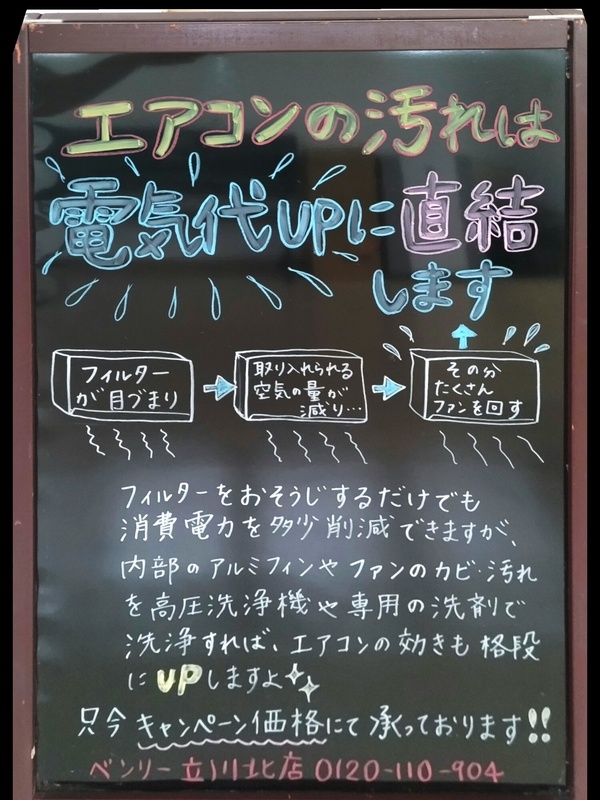 エアコンの汚れは
電気代UPに直結
します
フィルター
が目づまり
取り入れられる
空気の量が
減り…
その分
たくさん
ファンを回す
フィルターをおそうじするだけでも
消費電力を多少削減できますが、
内部のアルミフィンやファンのカビ・汚れ
を高圧洗浄機や専用の洗剤で
洗浄すれば、エアコンの効きも格段
にUPしますよ
只今キャンペーン価格にて承っております!!
ベンリー立川北店 0120-110-904